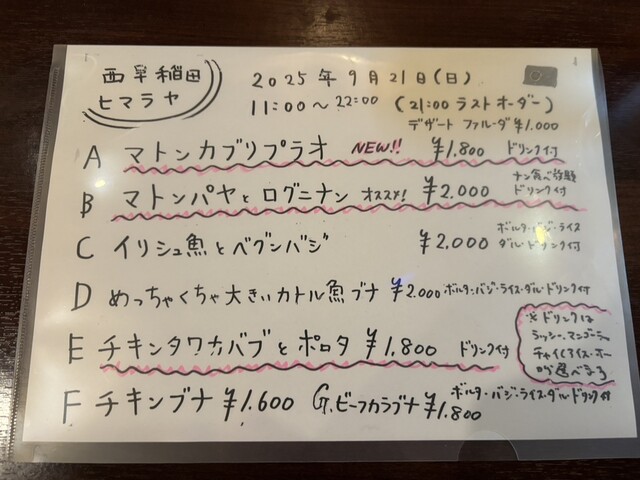 西早稲田
ヒマラヤ
2025年9月21日(日)
11:00〜22:00 (21:00 ラストオーダー)
デザート ファルーダ ¥1.000
A マトンカブリプラオ NEW!! ¥1.800 ドリンク付
B マトンパヤとログニナン オススメ! ¥2.000 ナン食べ放題 ドリンク付
C イリシュ魚とベグンバジ ¥2,000 ボルタ・バジ・ライス ダル・ドリンク付
D めっちゃくちゃ大きいカトル魚ブナ ¥2.000 ボルタ・バジ・ライス・ダル・ドリンク付
E チキンタワカバブとポロタ ¥1.800 ドリンク付
※ドリンクは
ラッシー、マンゴーラッ
チャイ(アイス・ホー
から選べる
F チキンブナ ¥1.600 G.ビーフカラブナ ¥1.800 ボルタ・バジ・ライス・ダル・ドリンク付